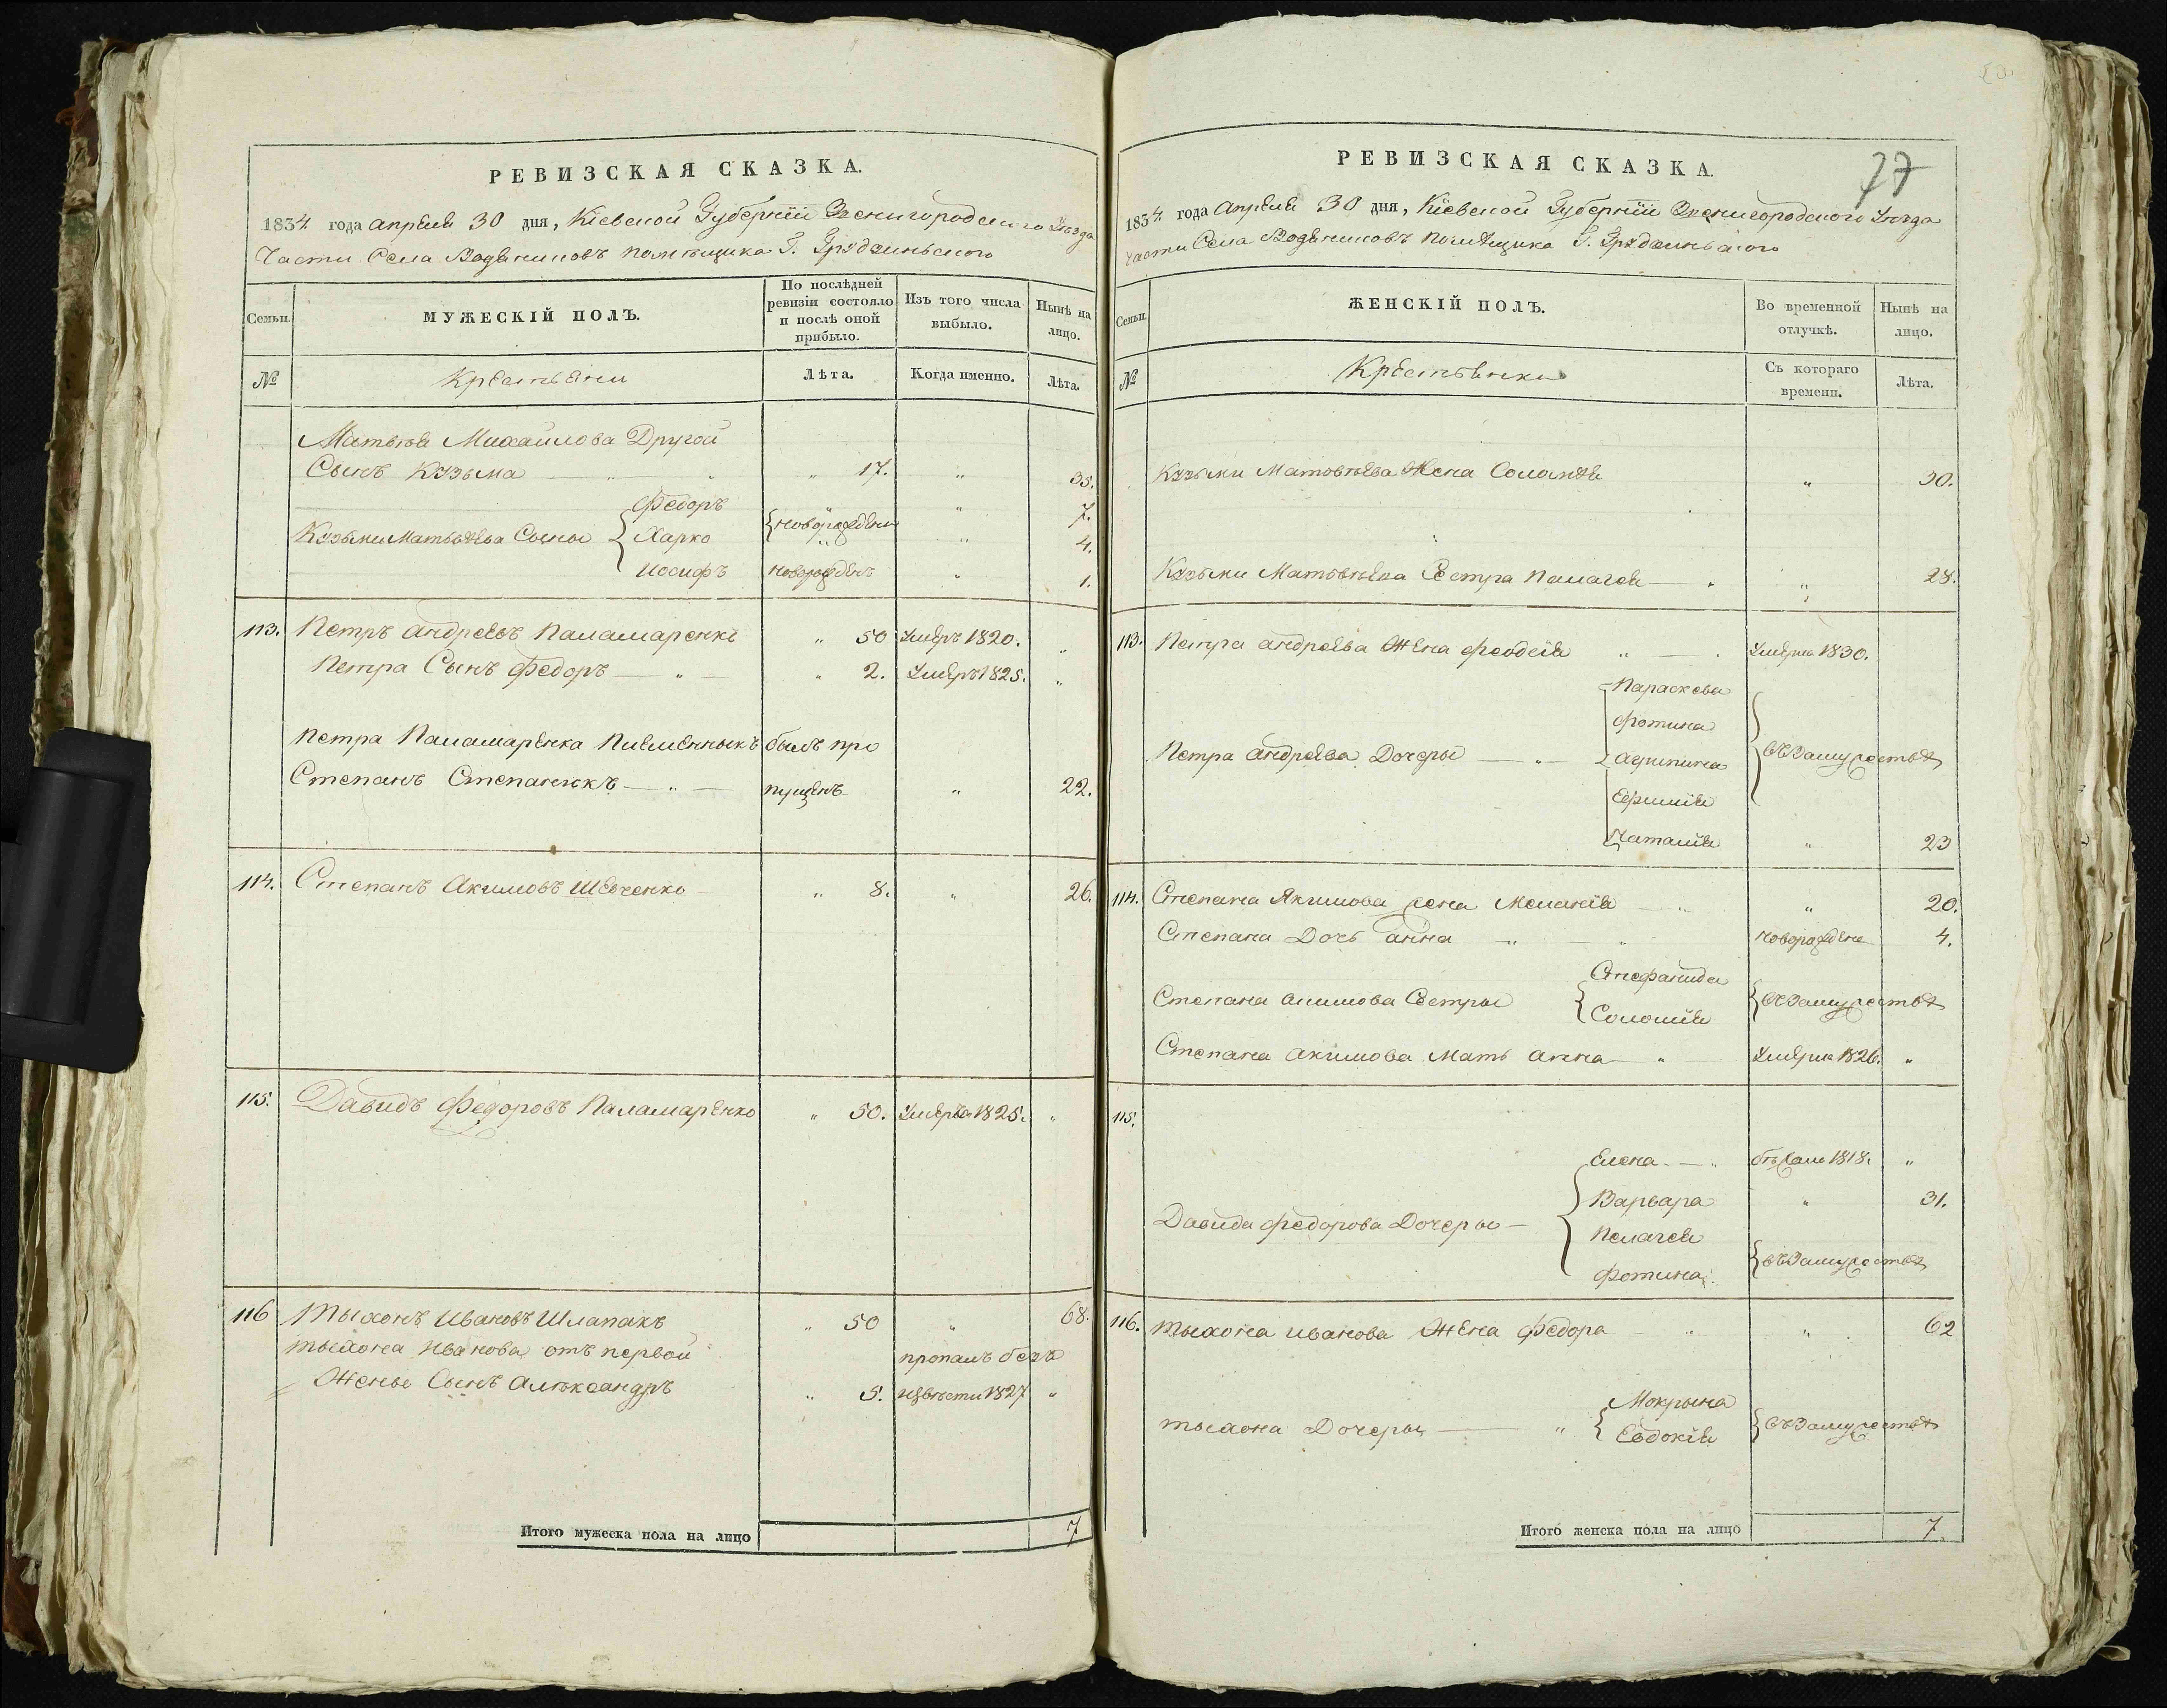 РЕВИЗСКАЯ СКАЗКА.
1834 года апреля 30 дня, Кіевской Губерніи Звенигородского Уѣзда
Части Села Водяниковъ помѣщика Г. Грудзинского
Семьи.
МУЖЕСКІЙ ПОЛЪ.
По послѣдней ревизіи состояло и послѣ оной прибыло.
Изъ того числа выбыло.
Нынѣ на лицо.
№
Крестьяни
Лѣта.
Когда именно.
Лѣта.
Матвѣя Михайлова Другой
Сынъ Кузьма — „ 17. „ 35.
Федоръ „ 7.
Кузьми Матвѣева Сыны { Харко { новорождены „ 4.
Иосифъ новорожденъ „ 1.
113. Петръ Андреевъ Паламаренко „ 50 Умеръ 1820. „
Петра Сынъ Федоръ — „ — „ 2. Умеръ 1825. „
Петра Паламаренка Племенныкъ былъ про
Степанъ Степанюкъ — „ — пущенъ „ 22.
114. Степанъ Акимовъ Шевченко — „ 8. „ 26.
115. Давидъ Федоровъ Паламаренко „ 50. Умеръ 1825. „
116 Тыхонъ Ивановъ Шлапакъ „ 50 „ 68.
Тыхона Иванова отъ первой пропалъ безъ
Жены Сынъ Александръ „ 5. извѣсти 1827 „
Итого мужеска пола на лицо 7
77
РЕВИЗСКАЯ СКАЗКА.
1834 года Апреля 30 дня, Кіевской Губерніи Звенигородского Уѣзда
части Села Водяниковъ помѣщика Г. Грудзинского
Семьи.
ЖЕНСКІЙ ПОЛЪ.
Во временной отлучкѣ.
Нынѣ на лицо.
№
Крестьянки
Съ котораго времени.
Лѣта.
Кузьми Матвѣева Жена Соломея „ 30.
Кузьми Матвѣева Сестра Палагея — „ „ 28.
113. Петра Андреева Жена Феодсія „ — Умерла 1830.
Параскева
Фотина
Петра Андреева Дочеры — „ — { Агрипина { въ Замужествѣ
Ефимія
Наталія „ 23
114. Степана Якимова жена Меланія „ „ 20.
Степана Дочь Анна „ „ новорождена 4.
Стефанида
Степана Акимова Сестры { Соломія { въ Замужествѣ
Степана Акимова Мать Анна — „ — Умерла 1826. „
115.
Елена — „ бѣжала 1818. „
Варвара „ 31.
Давида Федорова Дочеры — { Пелагея
Фотина { въ Замужествѣ
116. Тыхона Иванова Жена Федора „ „ 62
Мокрына
Тыхона Дочеры — „ { Евдокія { въ Замужествѣ
Итого женска пола на лицо 7.